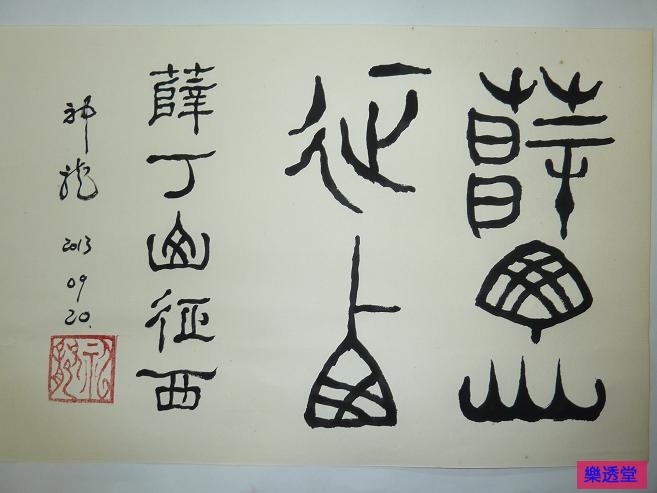 薛丁山
征西
薛丁山征西
神龍
2013
09
20.
樂透堂